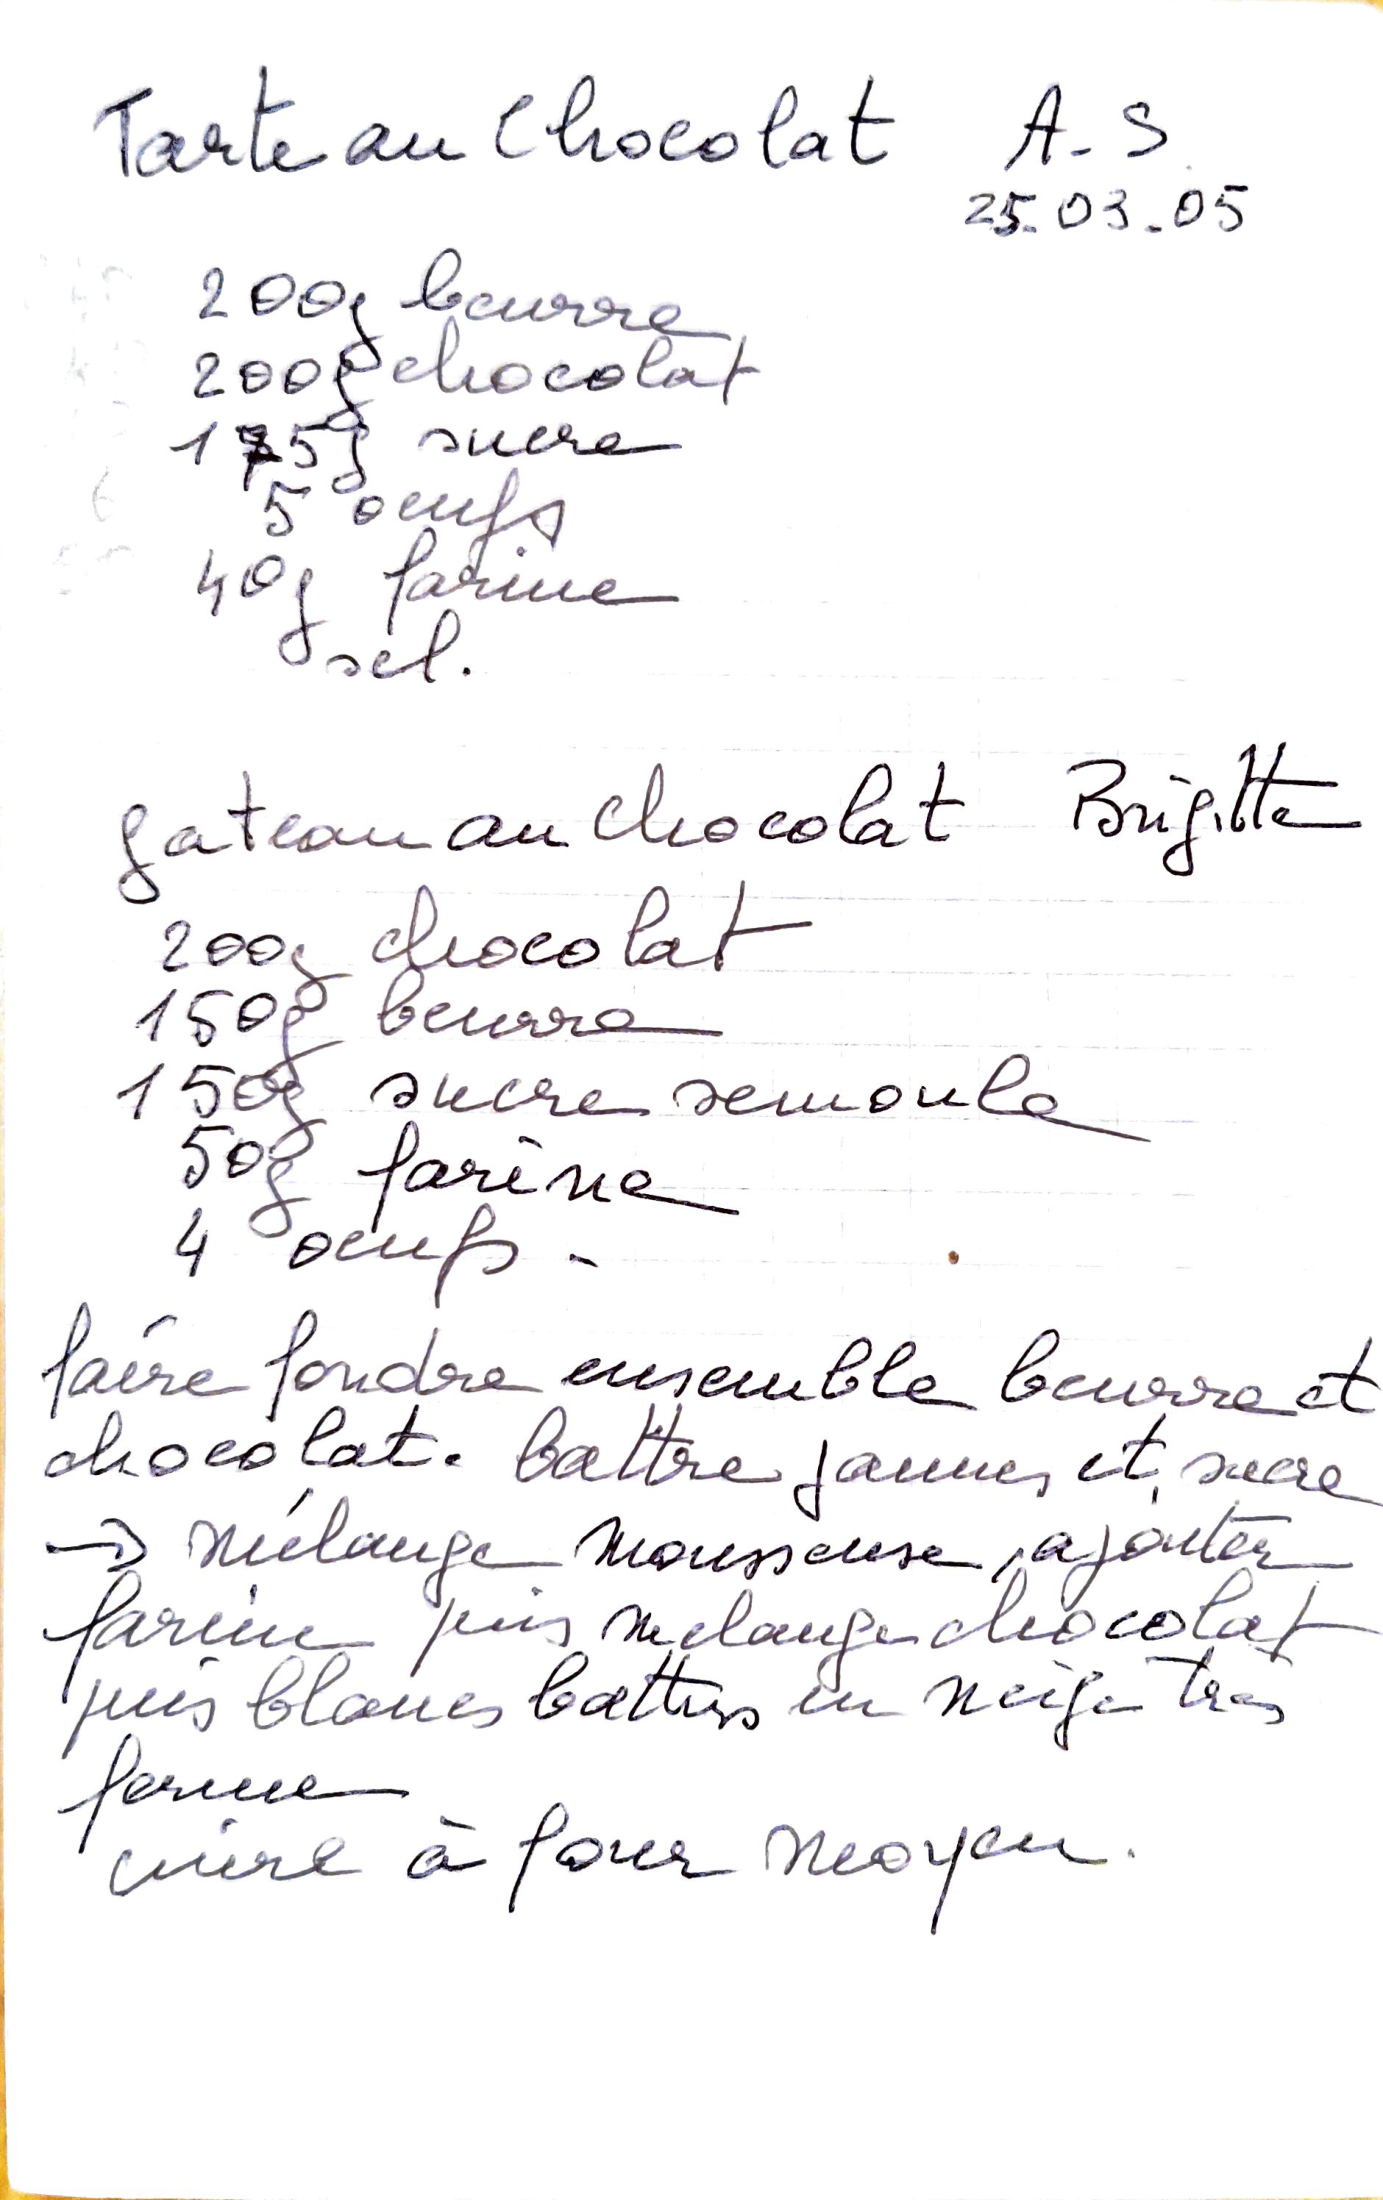 Tarte au Chocolat A-S
25-03-05
200g beurre
200g chocolat
175g sucre
5 oeufs
40g farine
sel.
gateau au chocolat Brigitte
200g chocolat
150g beurre
150g sucre semoule
50g farine
4 oeufs -
faire fondre ensemble beurre et
chocolat. battre jaunes et sucre
→ mélange mousseuse, ajouter
farine puis mélange chocolat
puis blancs battus en neige très
ferme
cuire à four moyen.